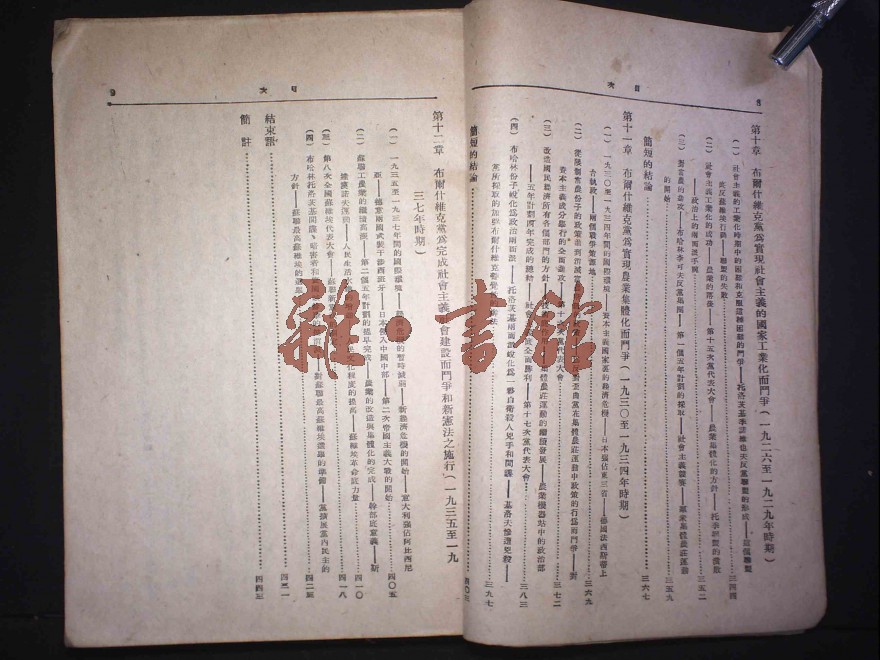 目次
8
第十章 布爾什維克黨為實現社會主義的國家工業化而鬥爭(一九二六至一九二九年時期)
(一) 社會主義的工業化時期中的困難和克服這種困難的鬥爭——托洛茨基季諾維也夫反黨聯盟的形成——這個聯盟
的反蘇維埃行動——聯盟的失敗……三四五
(二) 社會主義工業化的成功——農業的落後——第十五次黨代表大會——農業集體化的方針——托季聯盟的潰敗
——政治上的兩面派手腕……三五二
(三) 對富農的進攻——布哈林李可夫反黨集團——第一個五年計劃的採取——社會主義競賽——羣眾集體農莊運動
的開始……三五九
簡短的結論……三六七
第十一章 布爾什維克黨為實現農業集體化而鬥爭(一九三〇至一九三四年時期)
(一) 一九三〇至一九三四年間的國際環境——資本主義國家裏的經濟危機——日本強佔東三省——德國法西斯蒂上
台執政——兩個戰爭策源地……三六九
資本主義成分舉行的全面進攻——第十六次黨代表大會……三七二
(三) 改造國民經濟所有各個部門的方針
——五年計劃四年完成的總結——社會
全面勝利——第十七次黨代表大會……三八三
(四) 布哈林份子蛻化為政治兩面派——托洛茨基兩面派蛻化為一夥白衛殺人兇手和間諜——基洛夫慘遭兇殺——
黨所採取的加強布爾什維克警覺性……三九七
簡短的結論……四〇三
目次
9
第十二章 布爾什維克黨為完成社會主義社會建設而鬥爭和新憲法之施行(一九三五至一九
三七年時期)
(一) 一九三五至一九三七年間的國際環境——經濟危機的暫時減弱——新經濟危機的開始——意大利強佔阿比西尼
亞——德意兩國武裝干涉西班牙——日本侵入中國中部——第二次帝國主義大戰的開始……四〇五
(二) 蘇聯工農業的繼續高漲——第二個五年計劃的提早完成——農業的改造與集體化的完成——幹部底意義——斯
達漢諾夫運動——人民生活
化程度的提高——蘇維埃革命底力量……四一〇
(三) 第八次全國蘇維埃代表大會——蘇聯新……四一八
(四) 布哈林托洛茨基間諜、暗害者和
對蘇聯最高蘇維埃選舉的準備——黨擴展黨內民主的
方針——蘇聯最高蘇維埃的選舉……四二五
結束語……四三一
簡註……四四三
雜·書館